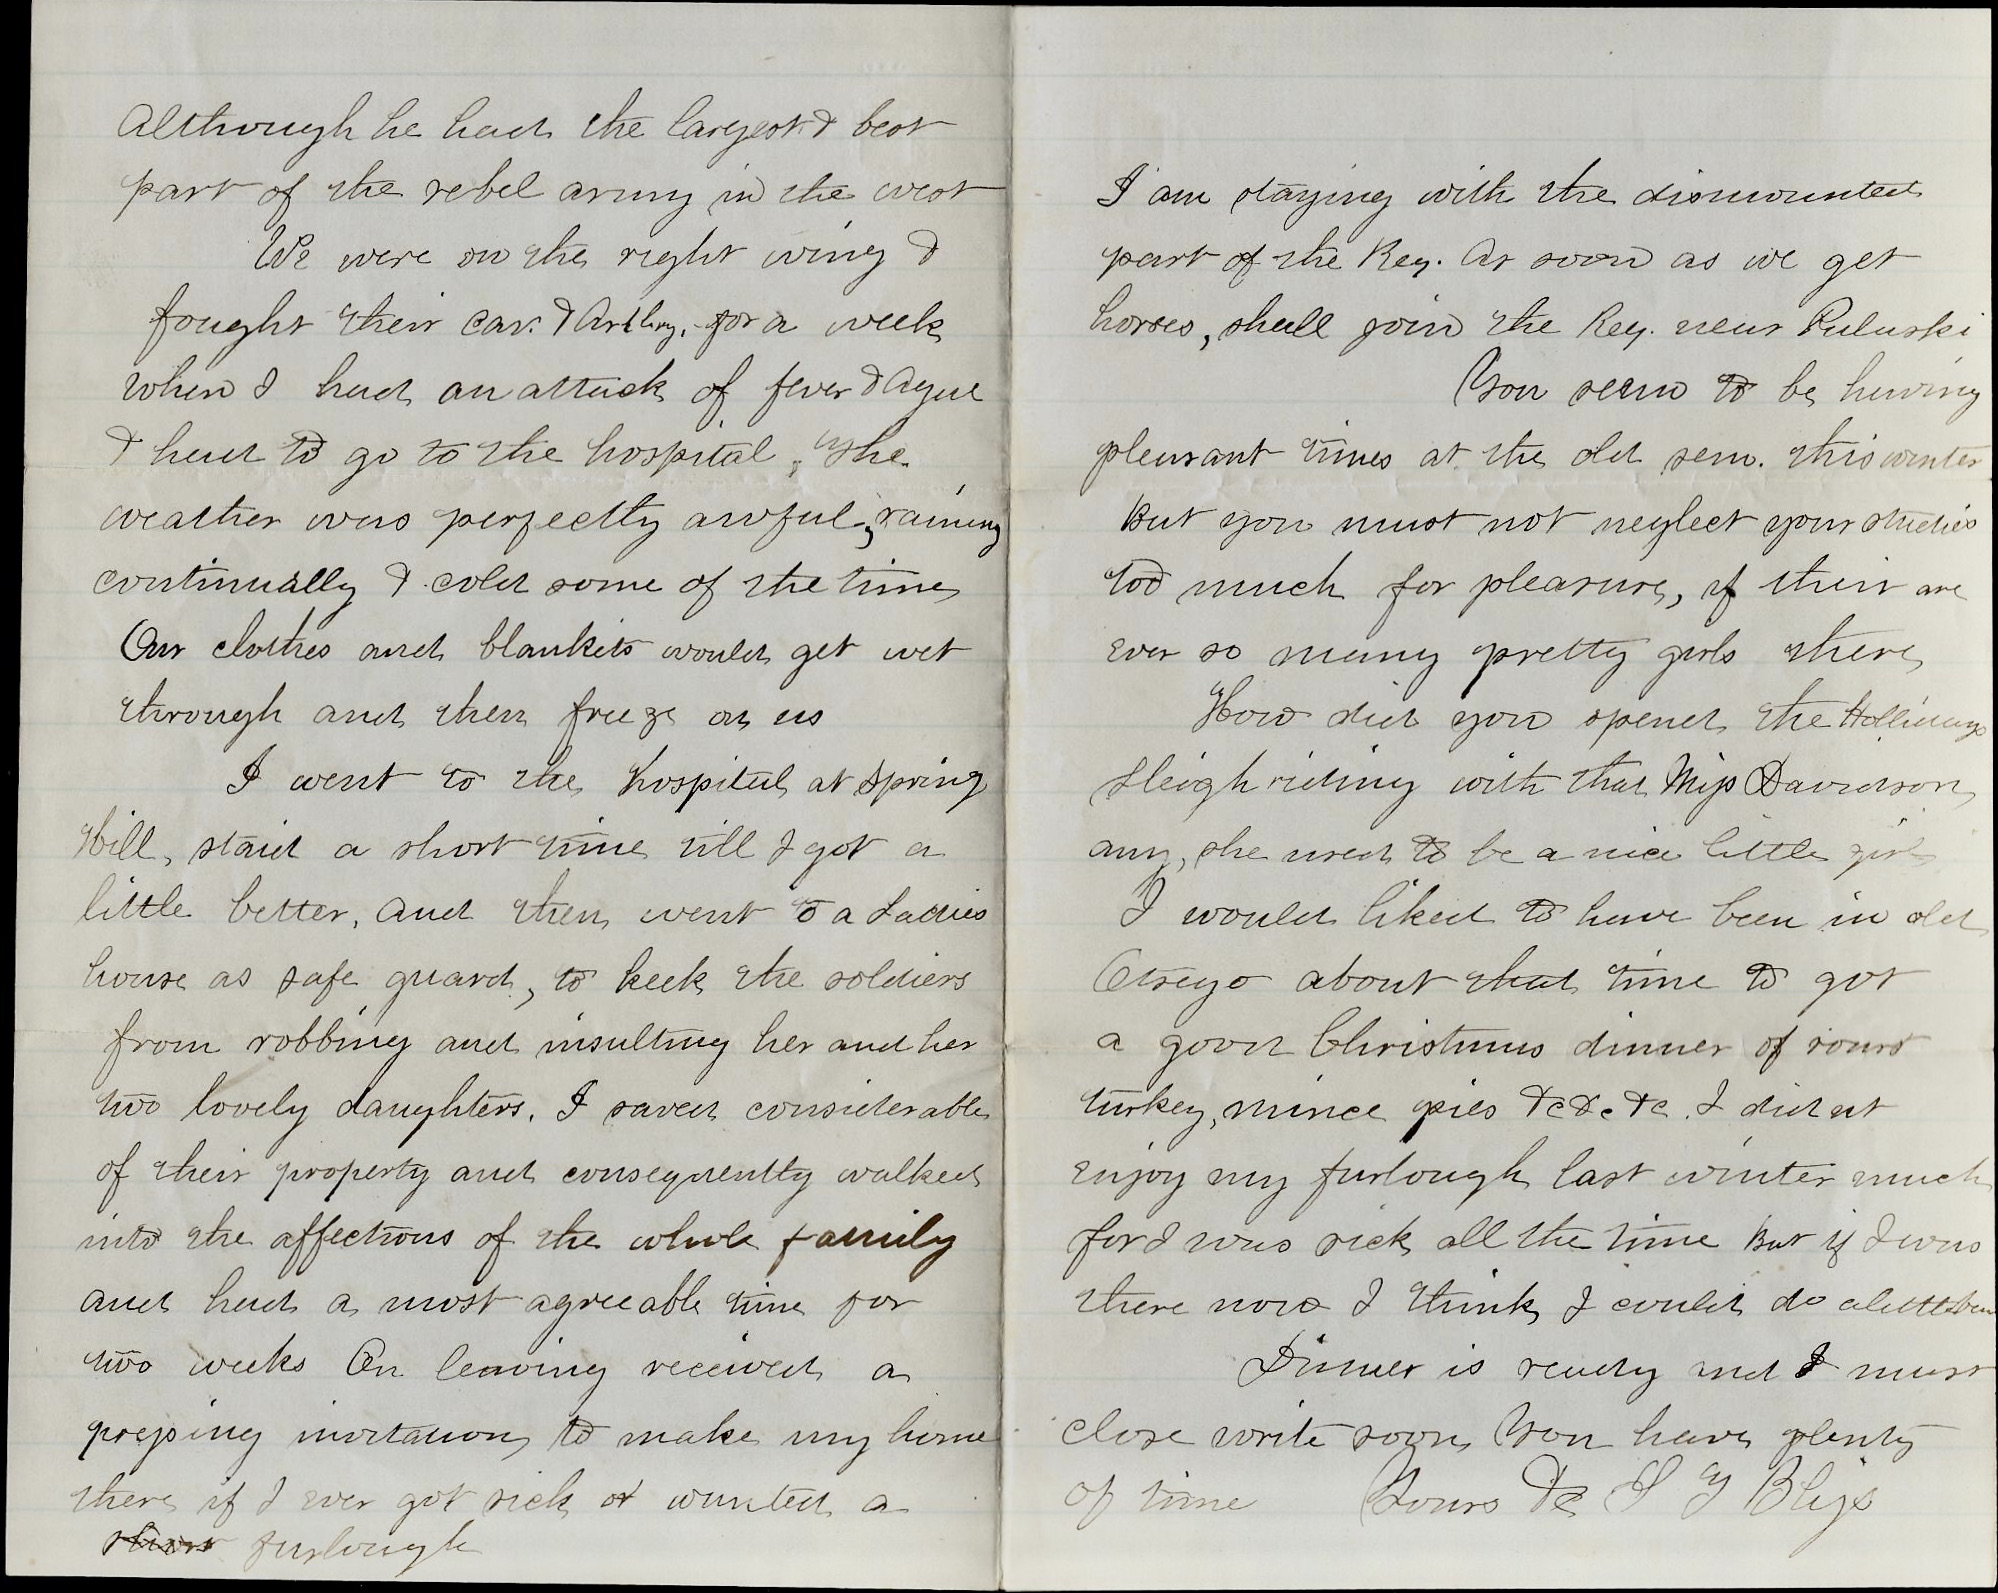 Although he had the largest & best
part of the rebel army in the west
We were on the right wing &
fought their Cav. & Artlry. for a week
when I had an attack of fever & Ague
& had to go to the hospital, The
weather was perfectly awful, raining
continually & cold some of the time
Our clothes and blankets would get wet
through and then freeze on us
I went to the hospital at Spring
Hill, staid a short time till I got a
little better, and then went to a Ladies
house as safe guard, to keek the soldiers
from robbing and insulting her and her
two lovely daughters. I saved considerable
of their property and consequently walked
into the affections of the whole family
and had a most agreeable time for
two weeks On leaving received a
pressing invitation to make my home
there if I ever got sick or wanted a
furlough
I am staying with the dismounted
part of the Reg. As soon as we get
horses, shall join the Reg. near Pulaski
You seem to be having
pleasant times at the old sem. this winter
But you must not neglect your studies
too much for pleasure, if their are
ever so many pretty girls there
How did you spend the Hollidays
sleigh riding with that Miss Davidson
any, she used to be a nice little girl
I would liked to have been in old
Otsego about that time to got
a good Christmas dinner of roast
turkey, mince pies &c &c &c. I did nt
enjoy my furlough last winter much
for I was sick all the time But if I was
there now I think I could do a little
Dinner is ready and I must
close write soon You have plenty
of time Yours &c S Y Bliss